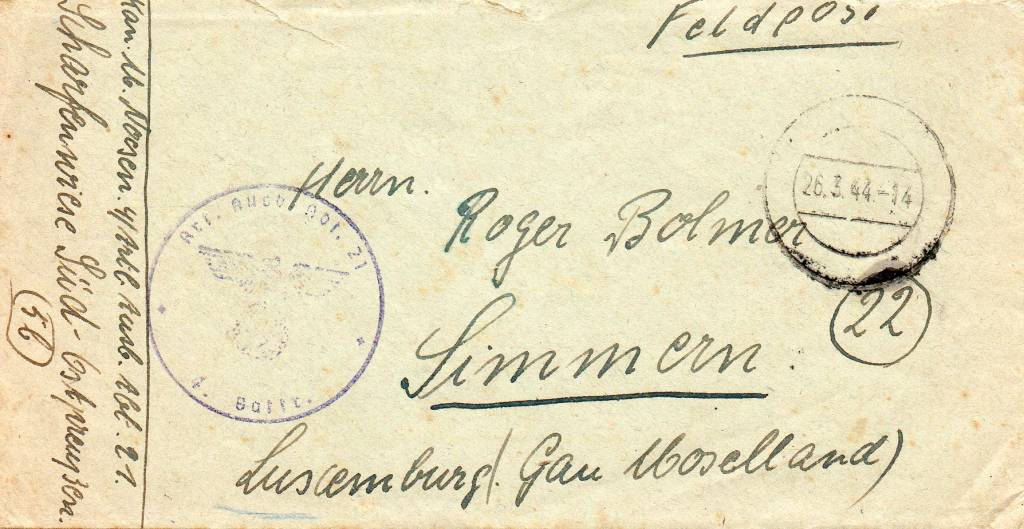 Feldpost
26.3.44.-14
Herrn.
Roger Bolmer
22
Simmern.
Luxemburg (Gau Moselland)
Art. Ausb. Abt. 21
4. Battr.
Kan. M. Noesen. 4/Artl. Ausb. Abt. 21.
Scharfenwiese Süd-Ostpreußen.
5b